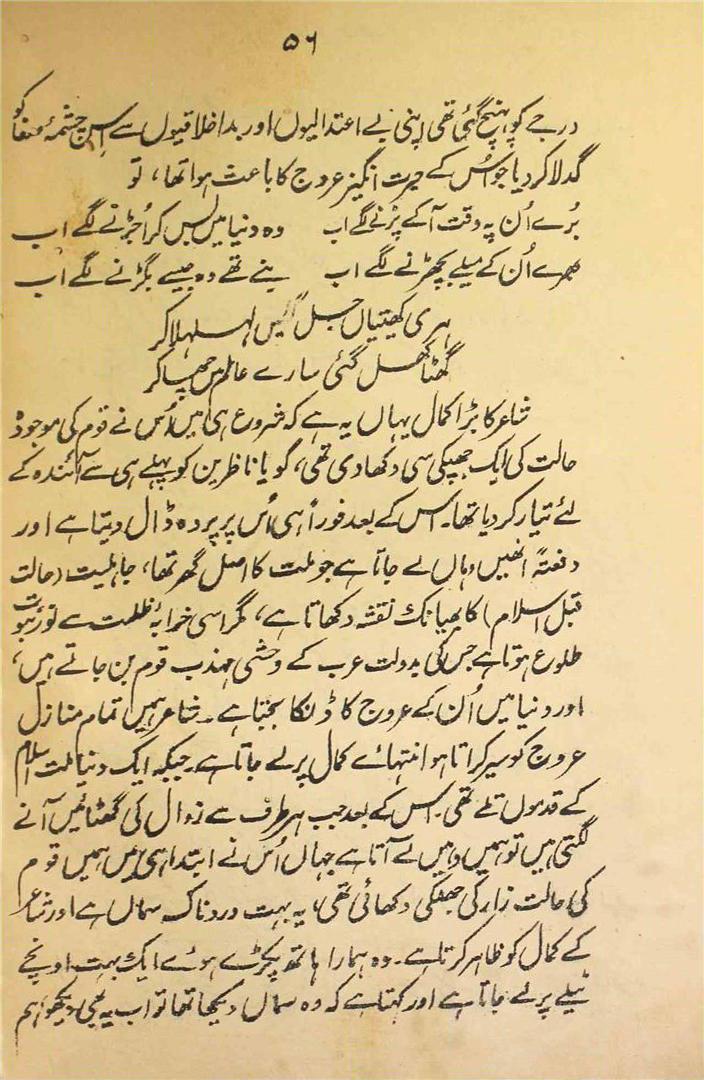 ۵۶
درجے کو پہنچ گئی تھی اپنی بے اعتدالیوں اور بداخلاقیوں سے اس چشمۂ مصفا کو
گدلا کر دیا جو اُس کے حیرت انگیز عروج کا باعث ہوا تھا، تو
بُرے اُن پہ وقت آ کے پڑنے لگے اب وہ دنیا میں بس کر اُجڑنے لگے اب
بھرے اُن کے میلے بچھڑنے لگے اب بنے تھے وہ جیسے بگڑنے لگے اب
ہری کھیتیاں جل گئیں لہلہا کر
گھٹا کھل گئی سارے عالم میں چھا کر
شاعر کا بڑا کمال یہاں یہ ہے کہ شروع ہی میں اُس نے قوم کی موجودہ
حالت کی ایک جھپکی سی دکھا دی تھی، گویا ناظرین کو پہلے ہی سے آئندہ کے
لئے تیار کر دیا تھا۔ اس کے بعد فوراً ہی اُس پر پردہ ڈال دیتا ہے اور
دفعتہً انھیں وہاں لے جاتا ہے جو ملت کا اصل گھر تھا، جاہلیت (حالت
قبل اسلام) کا بھیانک نقشہ دکھاتا ہے، مگر اسی خرابۂ ظلمت سے نورِ نبوت
طلوع ہوتا ہے جس کی بدولت عرب کے وحشی مہذب قوم بن جاتے ہیں،
اور دنیا میں اُن کے عروج کا ڈنکا بجتا ہے۔ شاعر ہمیں تمام منازل
عروج کو سیر کراتا ہوا انتہائے کمال پر لے جاتا ہے۔ جبکہ ایک دنیا ملت اسلام
کے قدموں تلے تھی۔ اس کے بعد جب ہر طرف سے زوال کی گھٹائیں آنے
لگتی ہیں تو ہمیں وہیں لے آتا ہے جہاں اُس نے ابتدا ہی میں ہمیں قوم
کی حالت زار کی جھلکی دکھائی تھی، یہ بہت دردناک سماں ہے اور شاعر
کے کمال کو ظاہر کرتا ہے۔ وہ ہمارا ہاتھ پکڑے ہوئے ایک بہت اونچے
ٹیلے پر لے جاتا ہے اور کہتا ہے کہ وہ سماں دیکھا تھا تو اب یہ بھی دیکھو، ہم